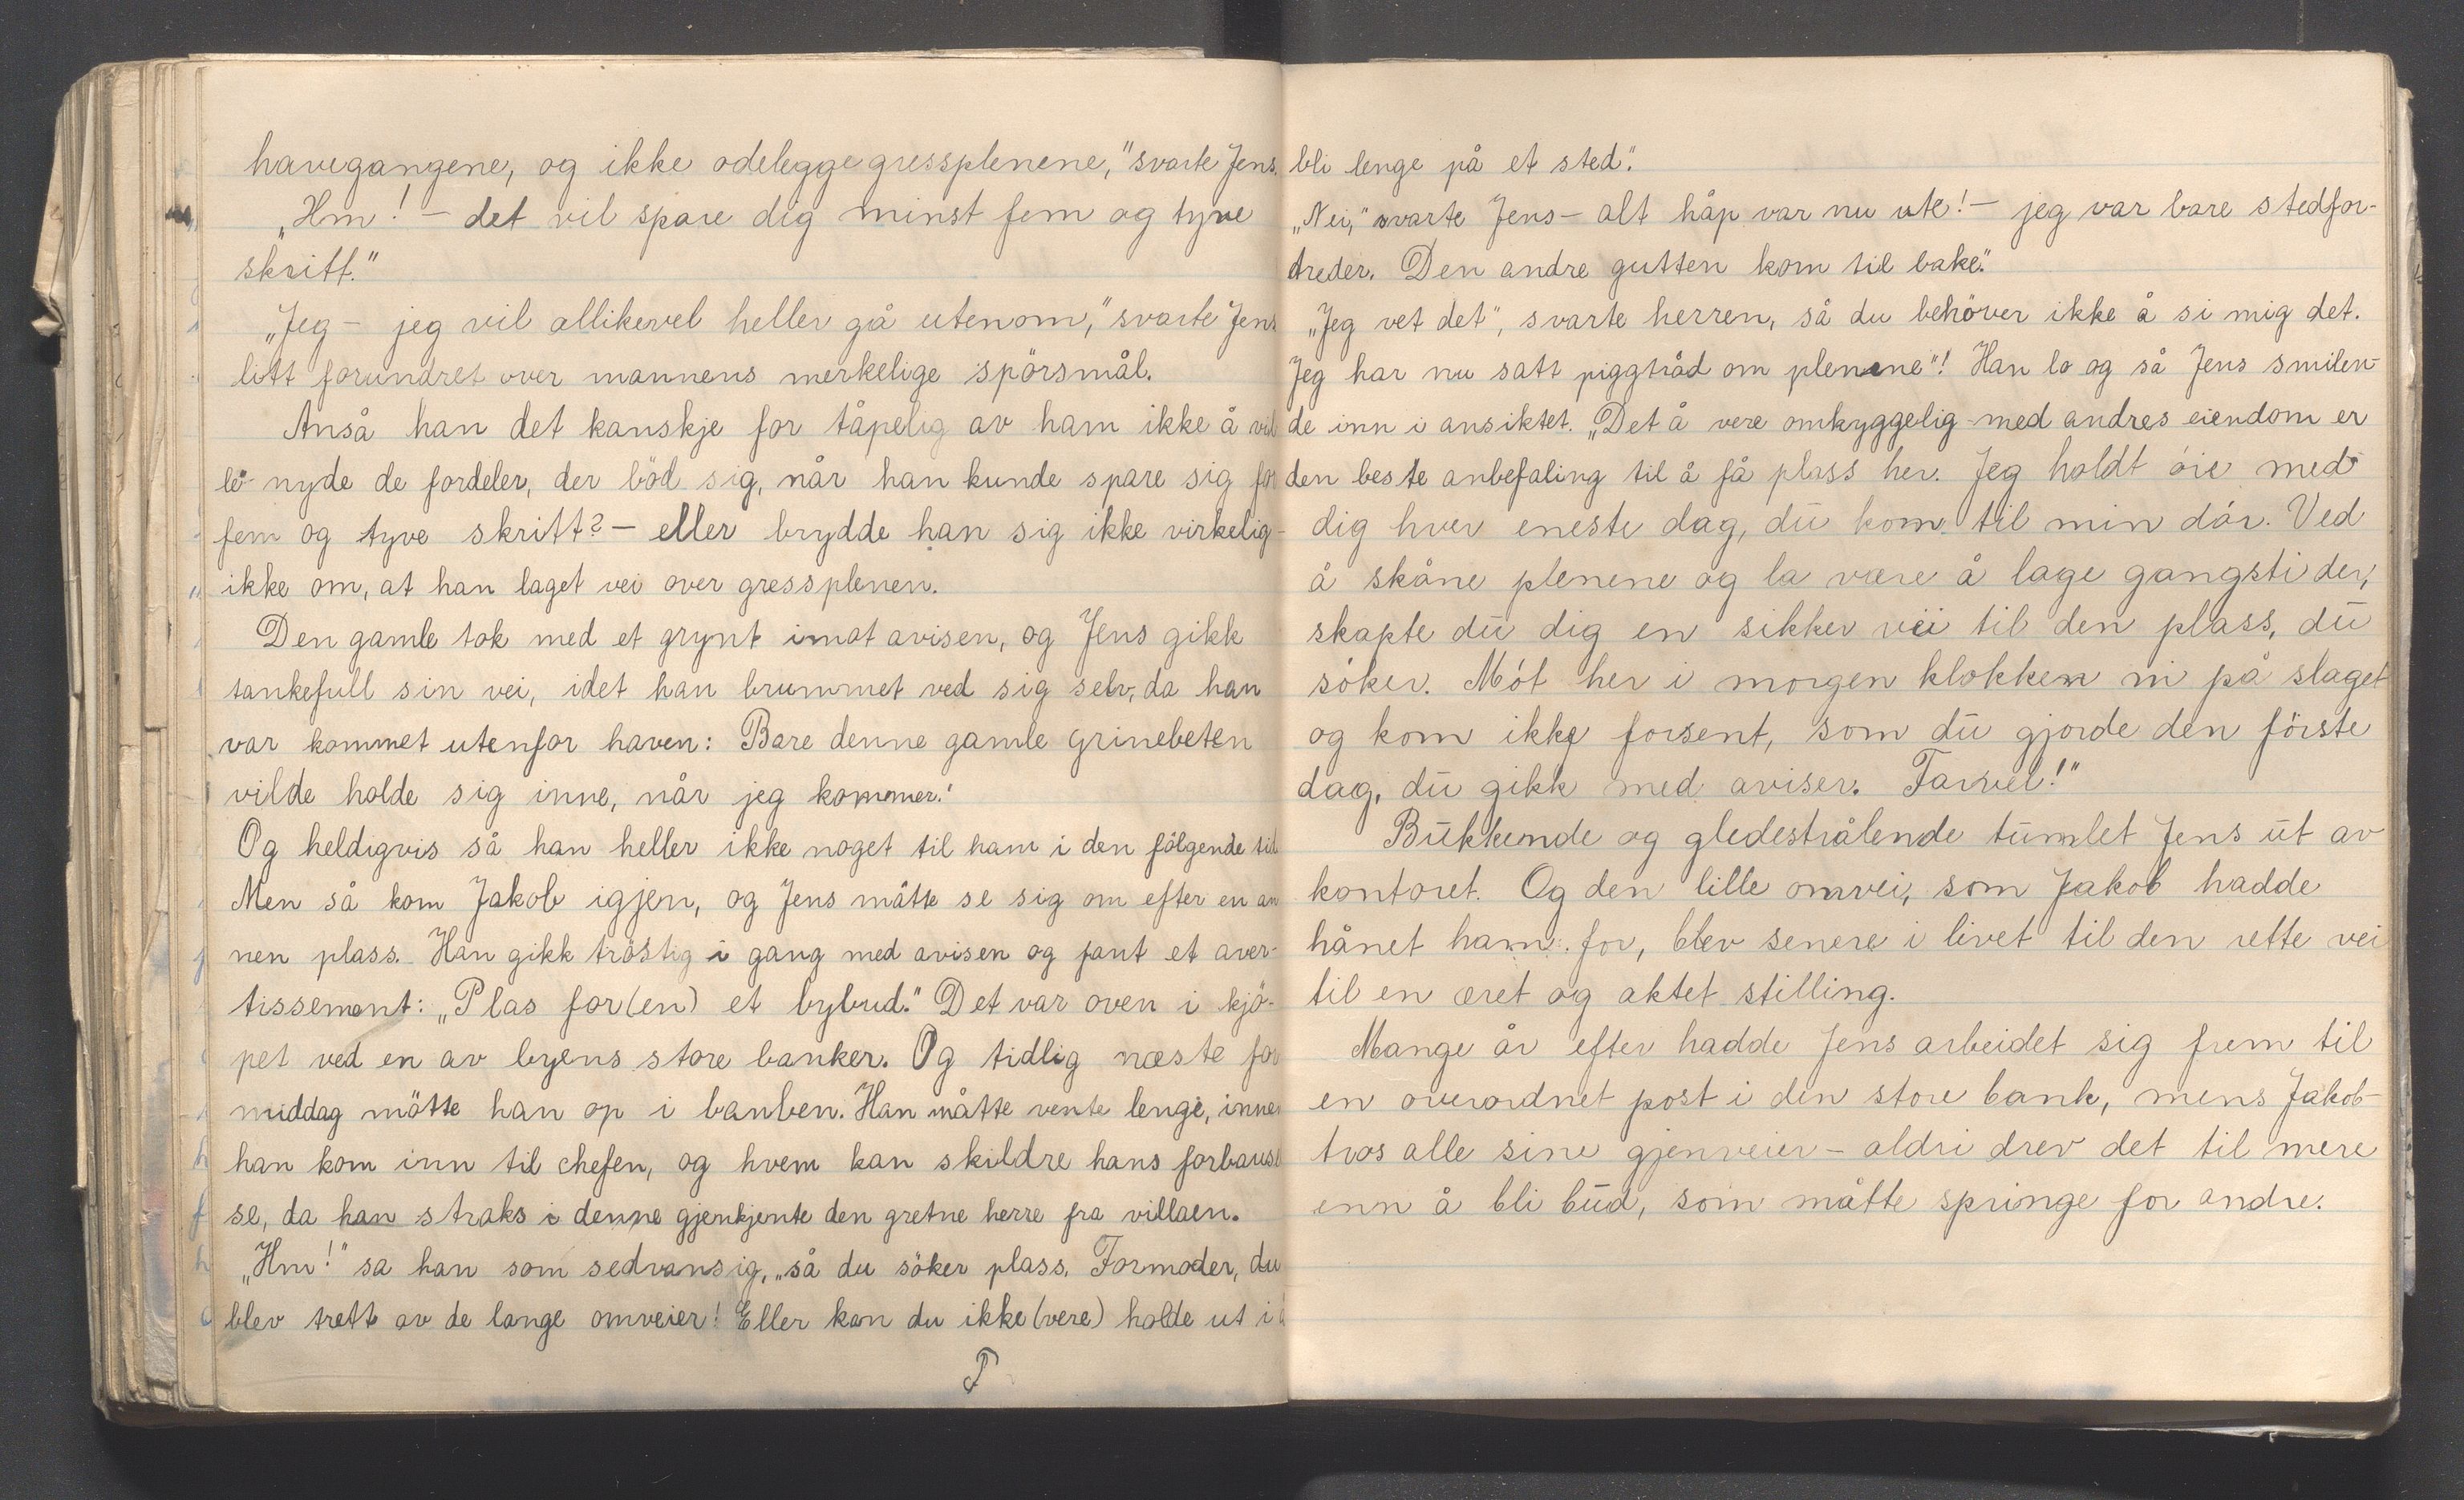 havegangene, og ikke odelegge gressplenene," svarte Jens.
„Hm! – det vil spare dig minst fem og tyve
skritt."
„Jeg – jeg vil allikevel heller gå utenom," svarte Jens
litt forundret over mannens merkelige spörsmål.
Anså han det kanskje for tåpelig av ham ikke å vil
le nyde de fordeler, der böd sig, når han kunde spare sig for
fem og tyve skritt? – eller brydde han sig ikke virkelig-
ikke om, at han laget vei over gressplenen.
Den gamle tok med et grynt imot avisen, og Jens gikk
tankefull sin vei, idet han brummet ved sig selv, da han
var kommet utenfor haven: Bare denne gamle grinebeten
vilde holde sig inne, når jeg kommer!
Og heldigvis så han heller ikke noget til ham i den fölgende tid
Men så kom Jakob igjen, og Jens måtte se sig om efter en an
nen plass. Han gikk tröstig i gang med avisen og fant et aver-
tissement: „Plas for (en) et bybud." Det var oven i kjö-
pet ved en av byens store banker. Og tidlig næste for
middag mötte han op i banben. Han måtte vente lenge, innen
han kom inn til chefen, og hvem kan skildre hans forbausel
se, da han straks i denne gjenkjente den gretne herre fra villaen.
„Hm!" sa han som sedvansig, „så du söker plass. Formoder, du
blev trett av de lange omveier! Eller kan du ikke (vere) holde ut i å
bli lenge på et sted".
„Nei," svarte Jens – alt håp var nu ute! – jeg var bare stedfor-
dreder. Den andre gutten kom til bake."
„Jeg vet det", svarte herren, så du behöver ikke å si mig det.
Jeg har nu satt piggtråd om plenene"! Han lo og så Jens smilen-
de inn i ansiktet. „Det å vere omhyggelig med andres eiendom er
den beste anbefaling til å få plass her. Jeg holdt óie med
dig hver eneste dag, dū kom til min dór. Ved
å skåne plenene og la være å lage gangstider,
skapte dū dig en sikker vei til den plass, dū
sóker. Mót her i morgen klokken ni på slaget
og kom ikke forsent, som dū gjorde den förste
dag, dū gikk med aviser. Farvel!"
Būkkende og gledestrålende tūmlet Jens ūt av
kontoret. Og den lille omvei, som Jakob hadde
hånet ham for, blev senere i livet til den rette vei
til en æret og aktet stilling.
Mange år efter hadde Jens arbeidet sig frem til
en overordnet post i den store bank, mens Jakob-
tros alle sine gjenveier – aldri drev det til mere
enn å bli būd, som måtte springe for andre.